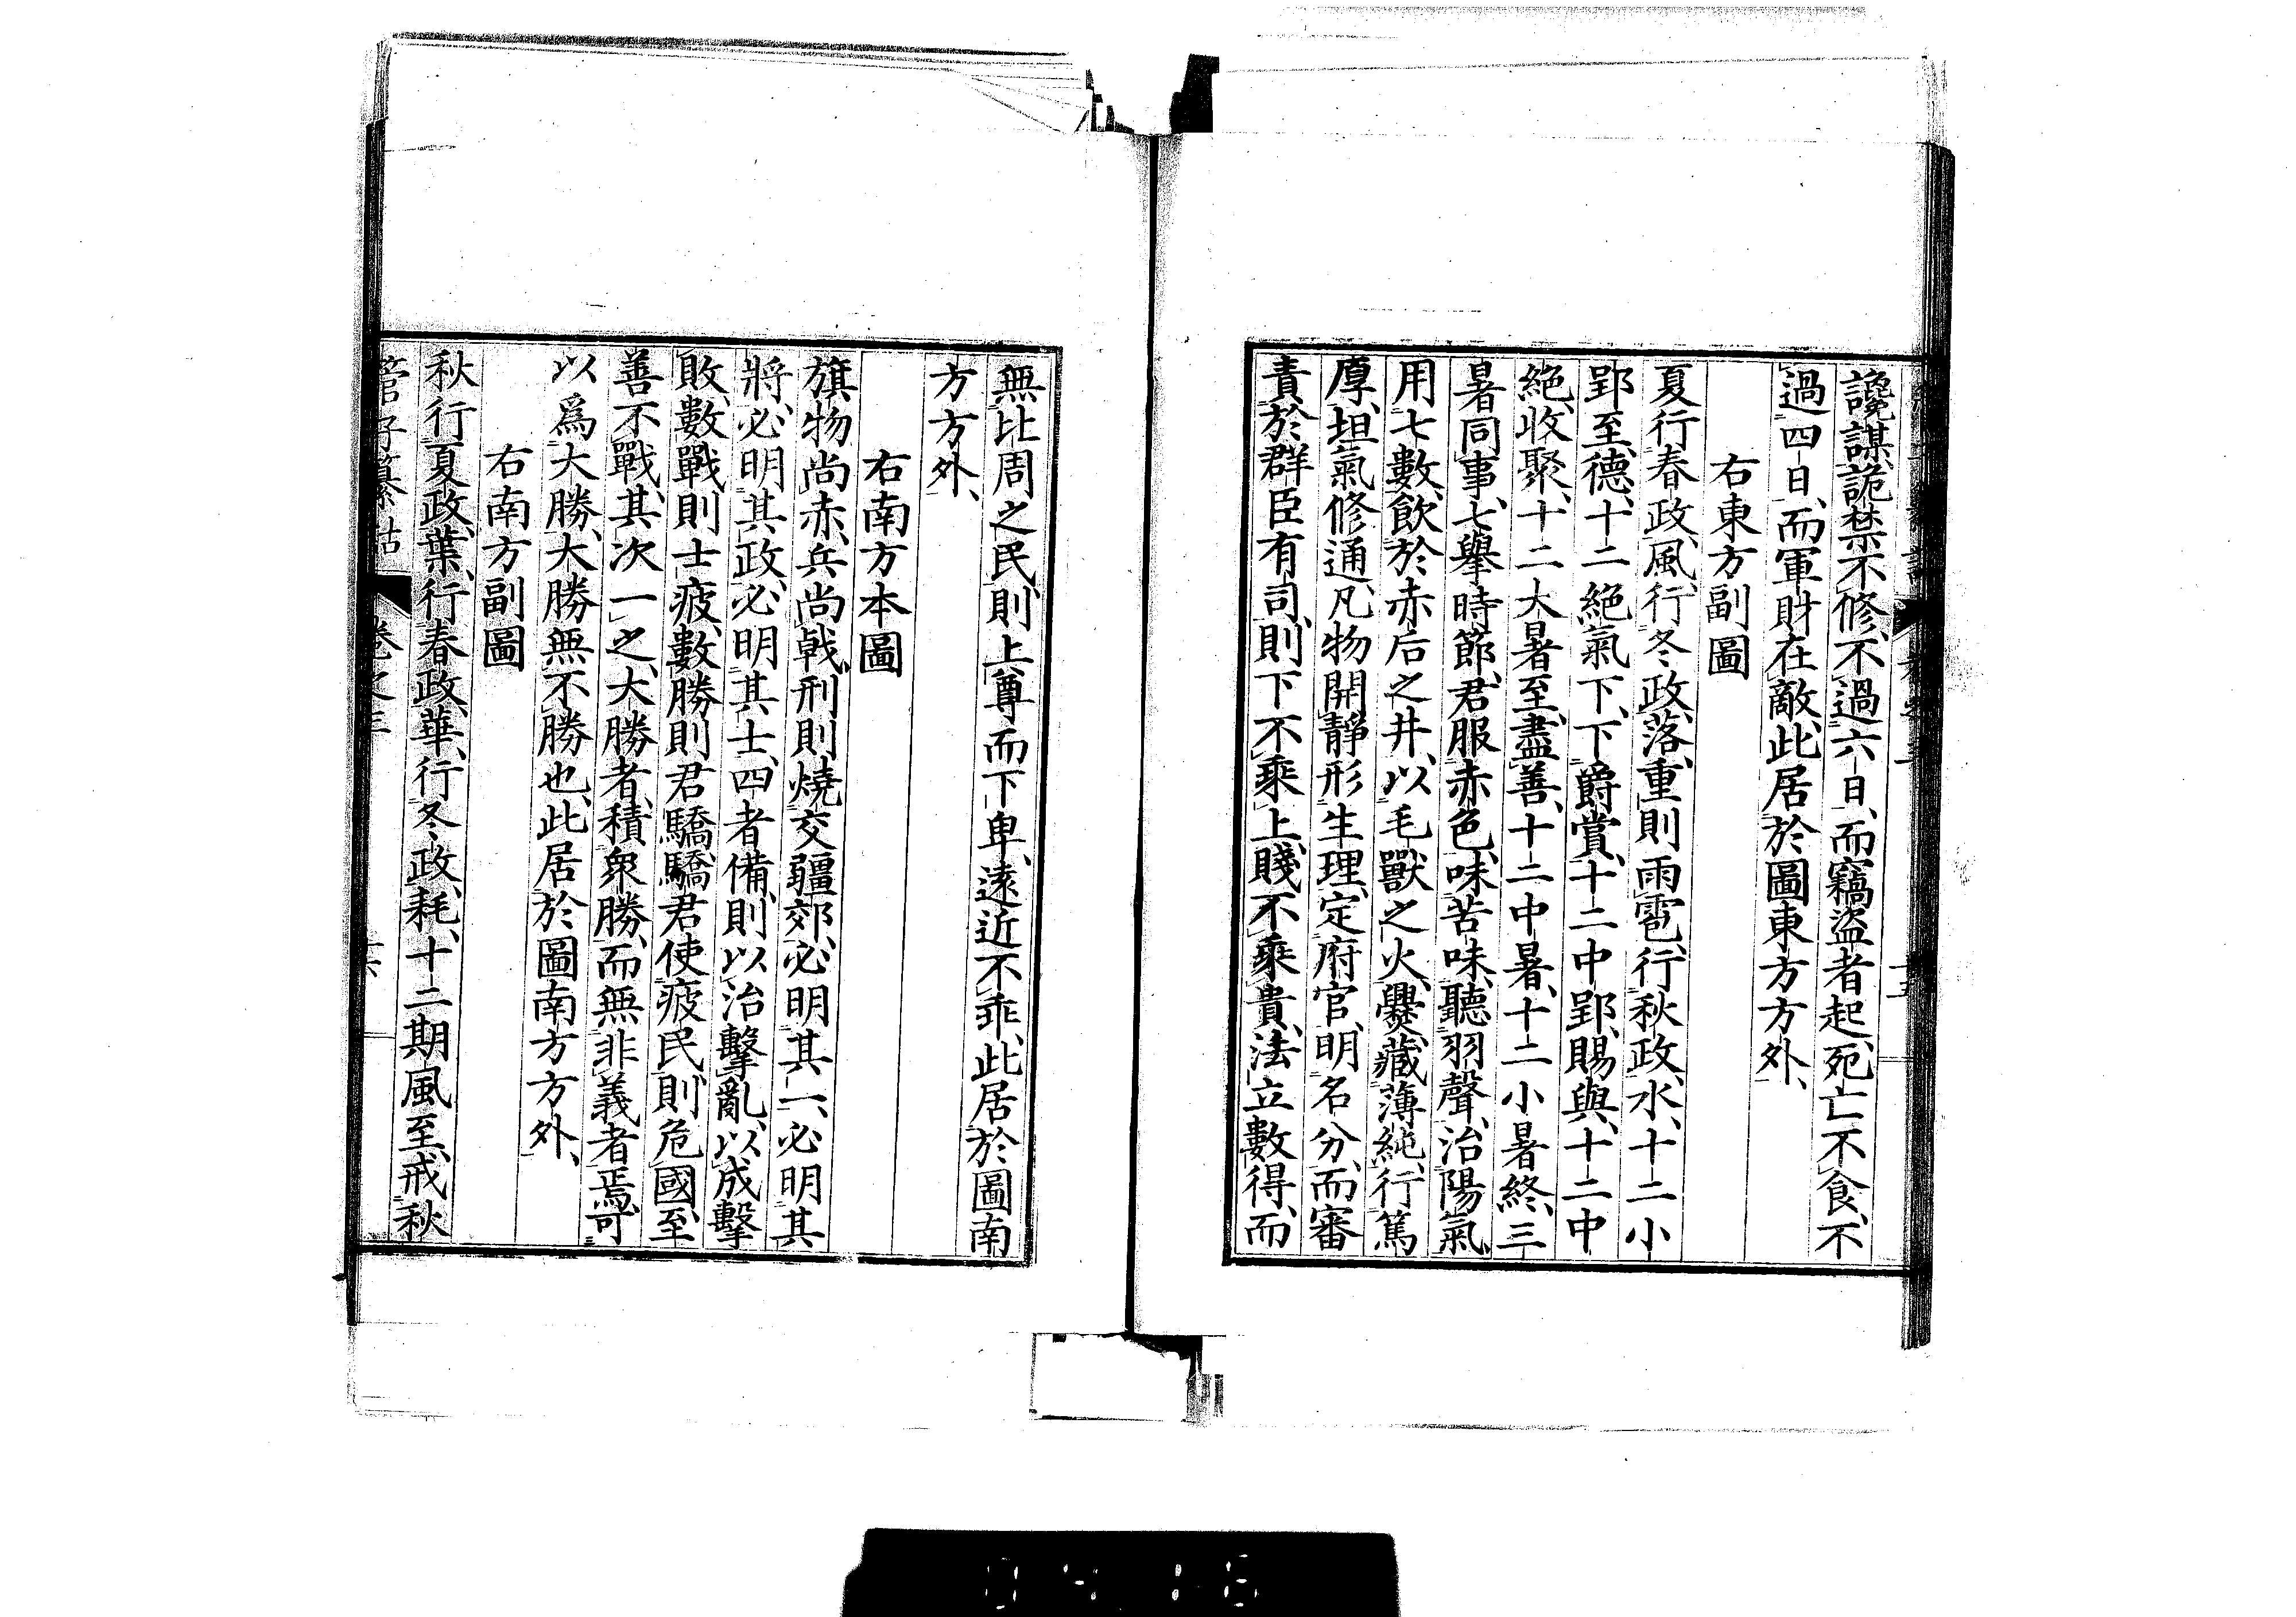 讒謀詭禁不修、不過六日、而竊盜者起、死亡不食、不
過四日、而軍財在敵、此居於圖東方方外、
右東方副圖
夏行春政、風、行冬政、落、重則雨雹、行秋政、水、十二小
郢至、德、十二絕氣下、下爵賞、十二中郢、賜與、十二中
絕、收聚、十二大暑至、盡善、十二中暑、十二小暑終、三
暑同事、七擧時節、君服赤色、味苦味、聽羽聲、治陽氣、
用七數、飲於赤后之井、以毛獸之火爨、藏薄純、行篤
厚、坦氣修通、凡物開靜、形生理、定府官、明名分、而審
責於群臣有司、則下不乘上、賤不乘貴、法立數得、而
無比周之民、則上尊而下卑、遠近不乖、此居於圖南
方方外、
右南方本圖
旗物尚赤、兵尚戟、刑則燒交疆郊、必明其一、必明其
將、必明其政、必明其士、四者備、則以治擊亂、以成擊
敗、數戰則士疲、數勝則君驕、驕君使疲民、則危國、至
善不戰、其次一之、大勝者、積衆勝、而無非義者焉、可
以爲大勝、大勝無不勝也、此居於圖南方方外、
右南方副圖
秋行夏政、葉、行春政、華、行冬政、耗、十二期風至、戒秋
管子纂詁 卷之三 十六